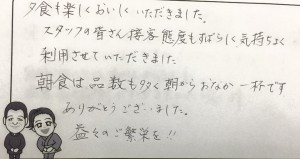 夕食も楽しくおいしくいただきました。
スタッフの皆さん接客態度もすばらしく気持ちよく
利用させていただきました。
朝食は品数も多く朝からおなか一杯です
ありがとうございました。
益々のご繁栄を!!